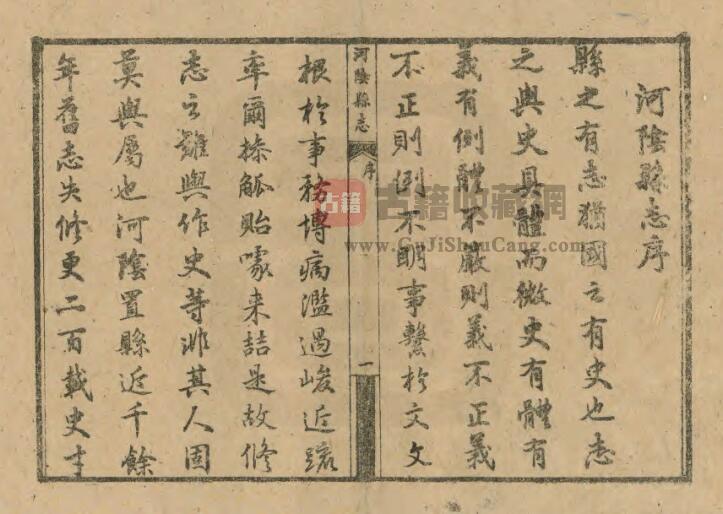 河陰縣志序
縣之有志猶國之有史也志
之與史具體而微史有體有
義有例體不嚴則義不正義
不正則例不明事繫於文文
河陰縣志
序
一
根於事務博病濫過峻近疏
率爾操觚貽喙来詰是故修
志之難與作史等非其人固
莫與屬也河陰置縣近千餘
年舊志失修更二百載史才
古籍
古籍收藏網
www.GuJiShouCang.com